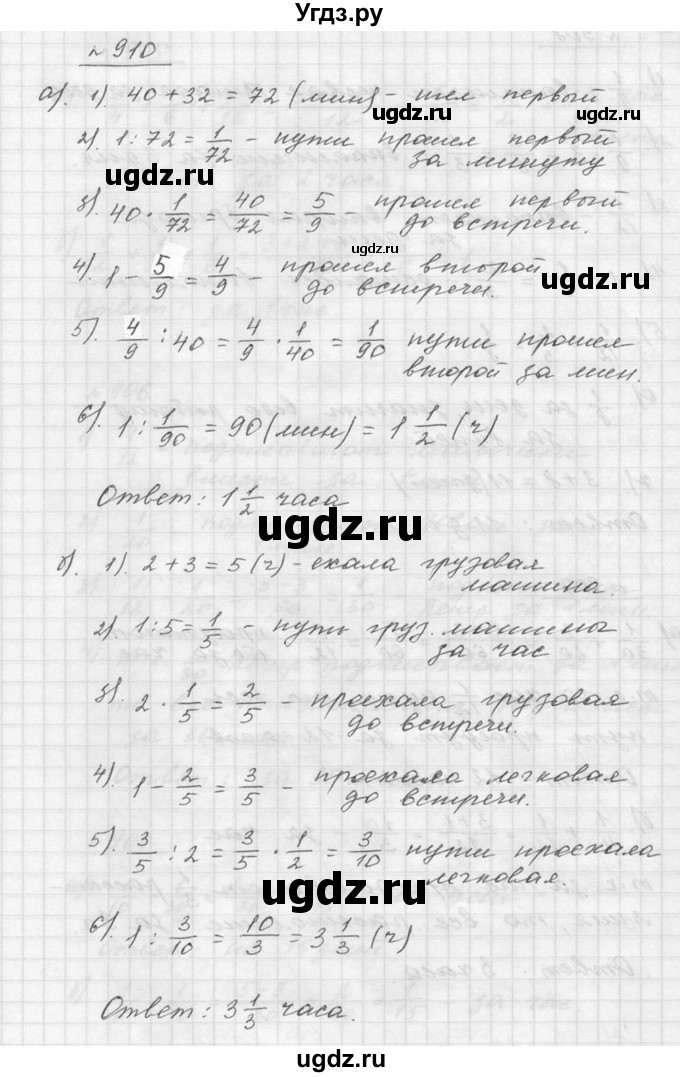 Угдз.ру
№ 910
а). 1). 40 + 32 = 72 (мин) - шел первый
ugdz.ru ugdz.ru
2). 1 : 72 = 1/72 - пути прошел первый
за минуту
3). 40 · 1/72 = 40/72 = 5/9 - прошел первый
до встречи.
ugdz.ru
4). 1 - 5/9 = 4/9 - прошел второй
до встречи.
5). 4/9 : 40 = 4/9 · 1/40 = 1/90 пути прошел
второй за мин.
ugdz.ru
6). 1 : 1/90 = 90 (мин) = 1 1/2 (ч)
Ответ: 1 1/2 часа
ugdz.ru
б). 1). 2 + 3 = 5 (ч) - ехала грузовая
машина.
2). 1 : 5 = 1/5 - путь груз. машины
за час
ugdz.ru
3). 2 · 1/5 = 2/5 - проехала грузовая
до встречи.
ugdz.ru
4). 1 - 2/5 = 3/5 - проехала легковая
до встречи.
5). 3/5 : 2 = 3/5 · 1/2 = 3/10 пути проехала
легковая.
ugdz.ru
6). 1 : 3/10 = 10/3 = 3 1/3 (ч)
Ответ: 3 1/3 часа.
ugdz.ru